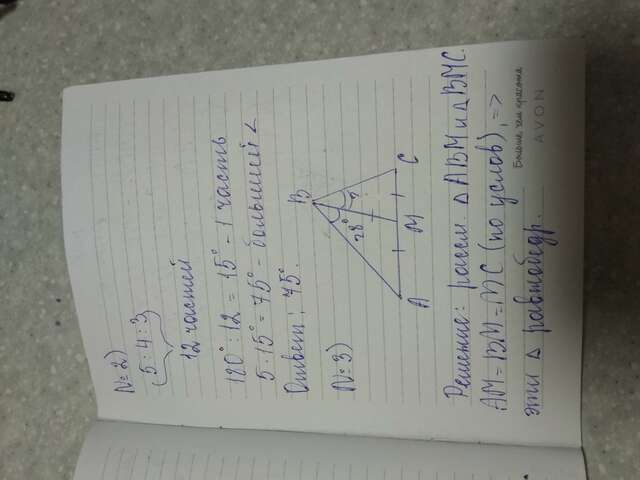 № 2)
(5 : 4 : 3)
12 частей
180° : 12 = 15° - 1 часть
5 · 15° = 75° - больший ∠
Ответ: 75°.
№ 3)
B
28°
?
A
M
C
Решение: рассм. △ABM и △BMC.
AM = BM = MC (по услов), =>
эти △ равнобедр.
Больше чем красота
AVON